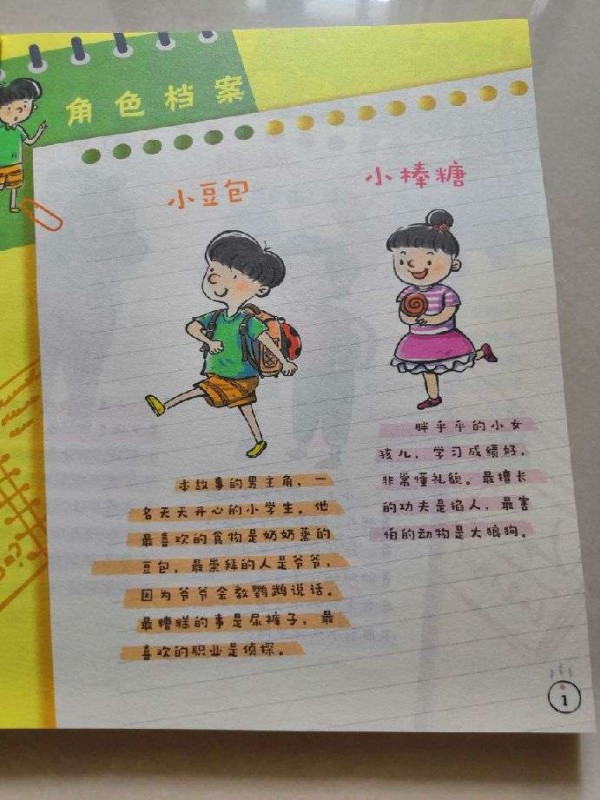 角色档案
小豆包
小棒糖
本故事的男主角，一
名天天开心的小学生。他
最喜欢的食物是奶奶蒸的
豆包，最崇拜的人是爷爷，
因为爷爷会教鹦鹉说话。
最糟糕的事是尿裤子，最
喜欢的职业是侦探。
胖乎乎的小女
孩儿，学习成绩好，
非常懂礼貌。最擅长
的功夫是掐人，最害
怕的动物是大狼狗。
1